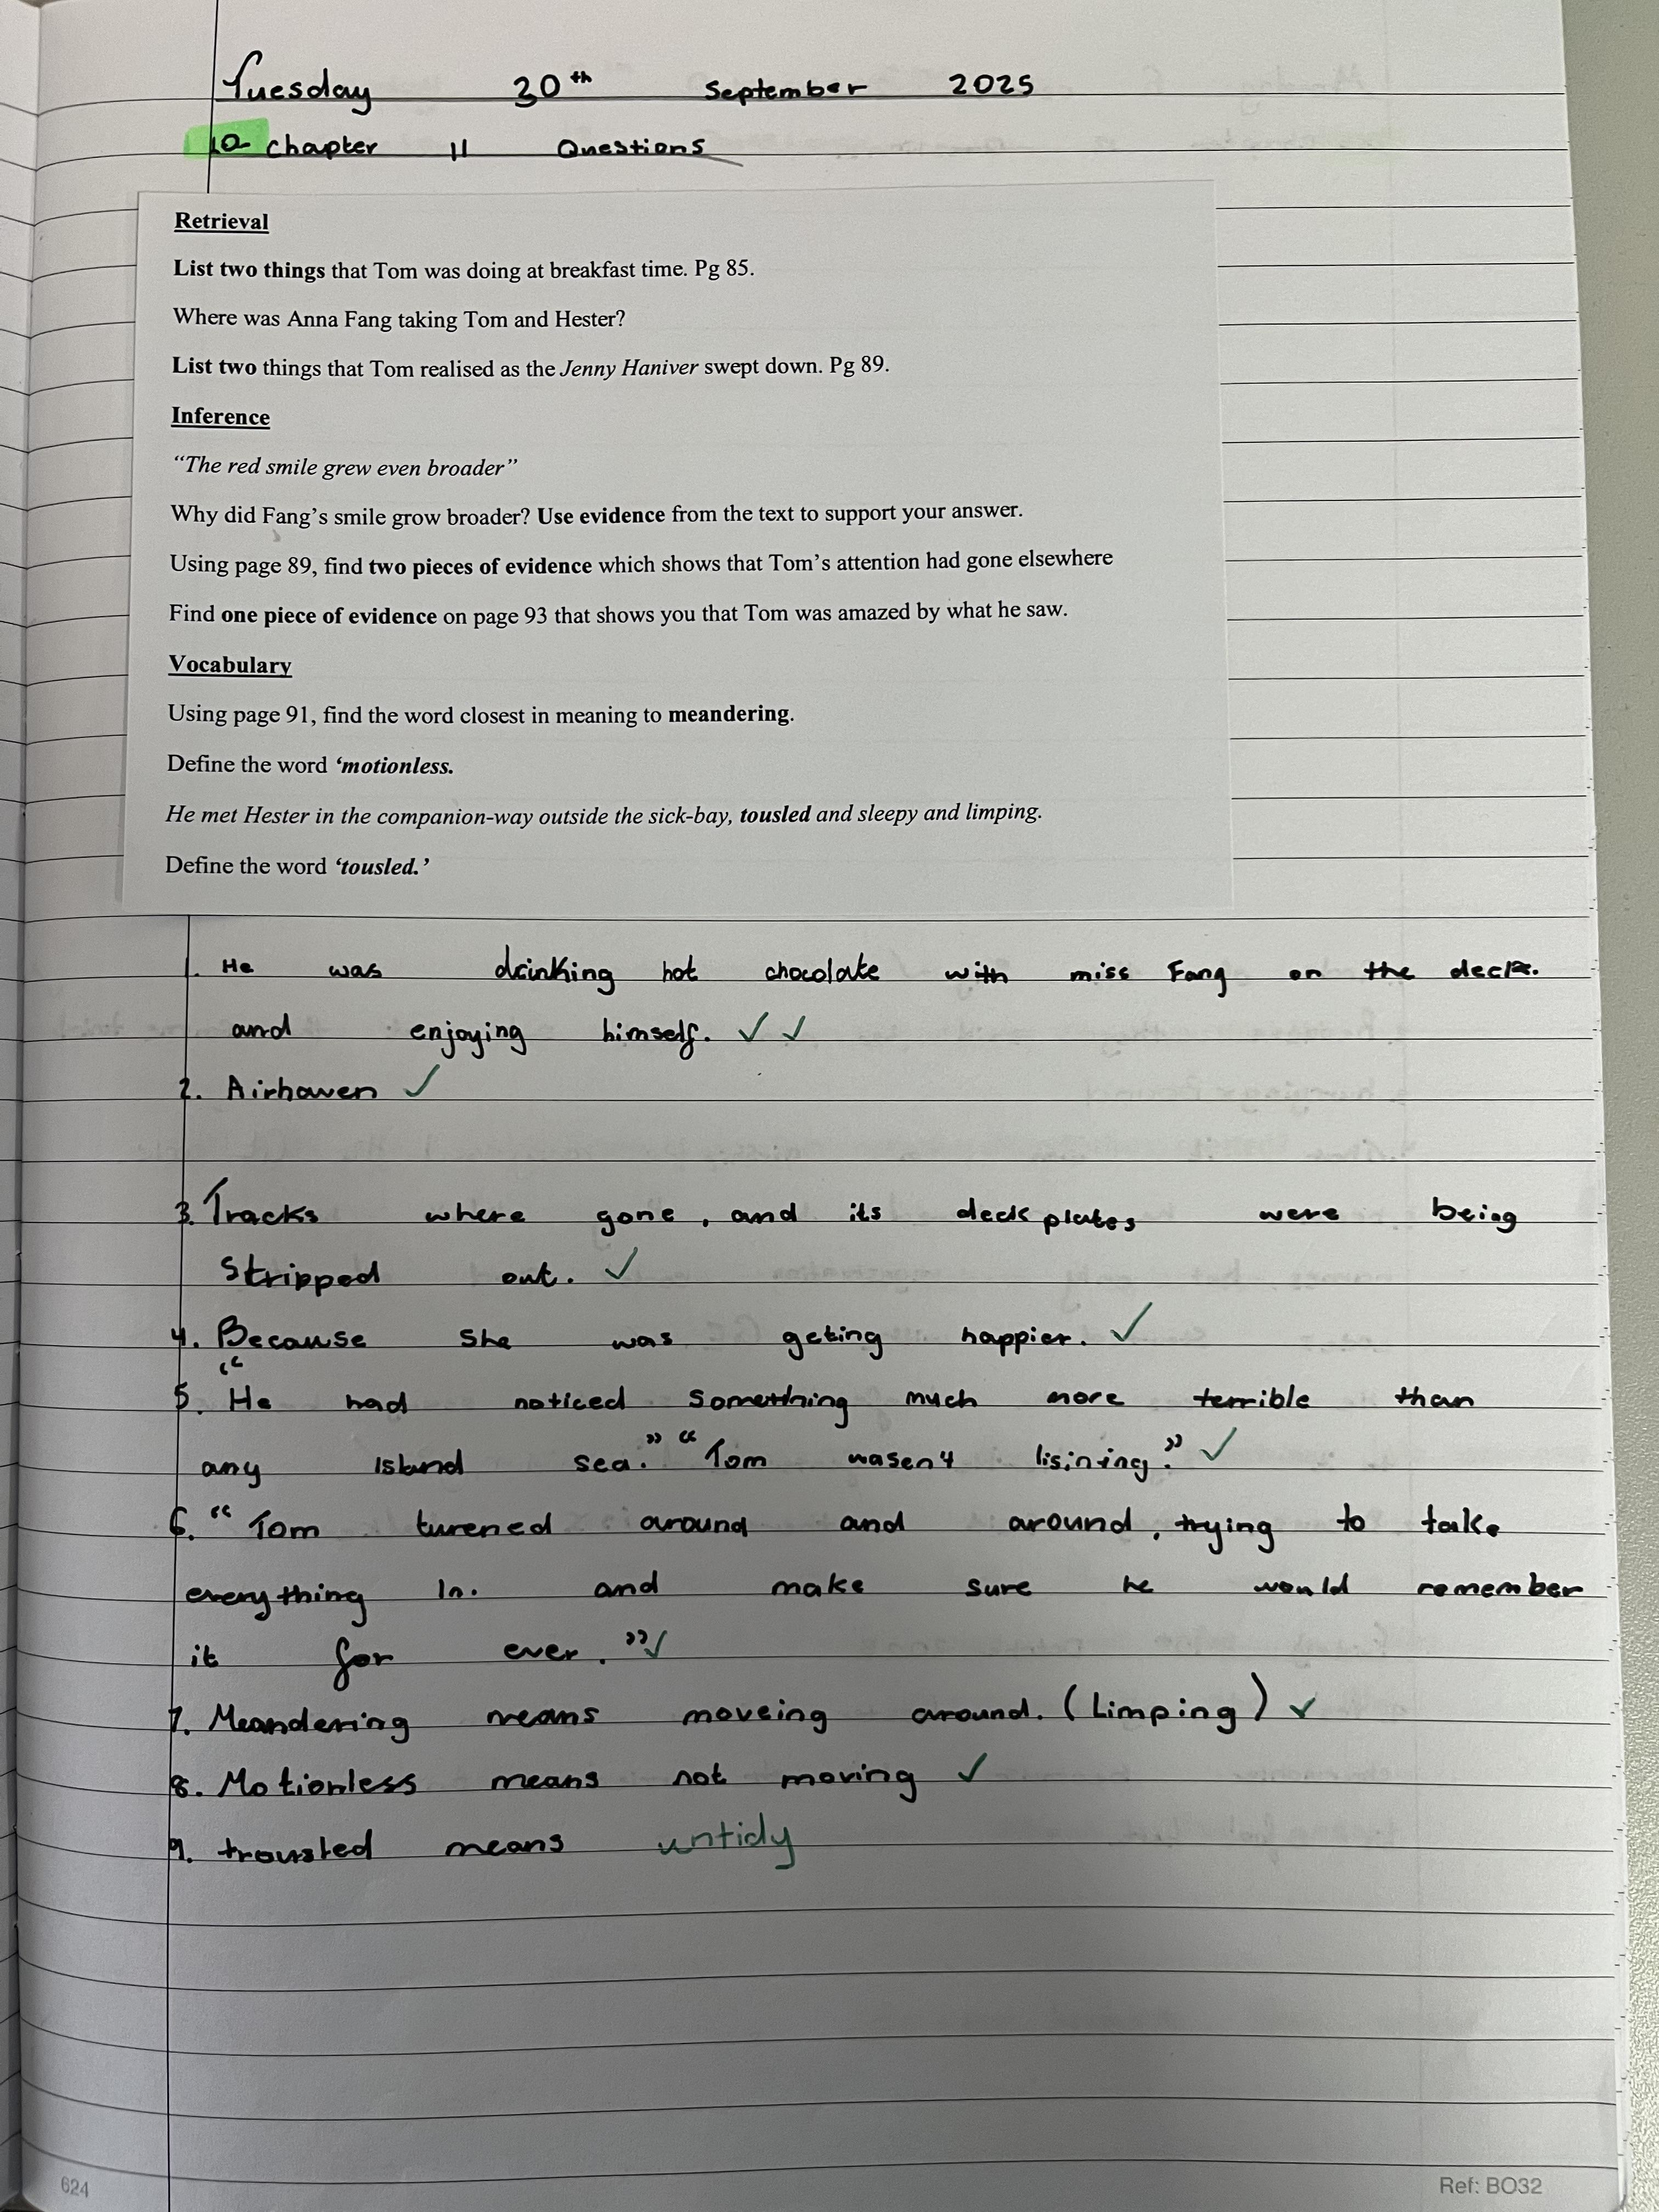 Tuesday 30th September 2025
LO Chapter 11 Questions
Retrieval
List two things that Tom was doing at breakfast time. Pg 85.
Where was Anna Fang taking Tom and Hester?
List two things that Tom realised as the Jenny Haniver swept down. Pg 89.
Inference
“The red smile grew even broader”
Why did Fang’s smile grow broader? Use evidence from the text to support your answer.
Using page 89, find two pieces of evidence which shows that Tom’s attention had gone elsewhere
Find one piece of evidence on page 93 that shows you that Tom was amazed by what he saw.
Vocabulary
Using page 91, find the word closest in meaning to meandering.
Define the word ‘motionless.
He met Hester in the companion-way outside the sick-bay, tousled and sleepy and limping.
Define the word ‘tousled.’
1. He was drinking hot chocolate with miss Fang on the deck.
and enjoying himself. ✓ ✓
2. Airhaven ✓
3. Tracks where gone, and its deckplates were being
Stripped out. ✓
4. Because She was geting happier. ✓
5. “He had noticed something much more terrible than
any island sea.” “Tom wasen't lisining.” ✓
6. “Tom turened around and around, trying to take
everything In. and make sure he would remember
it for ever.” ✓
7. Meandering means moveing around. (Limping) ✓
8. Motionless means not moving ✓
9. trousled means untidy
624
Ref: BO32